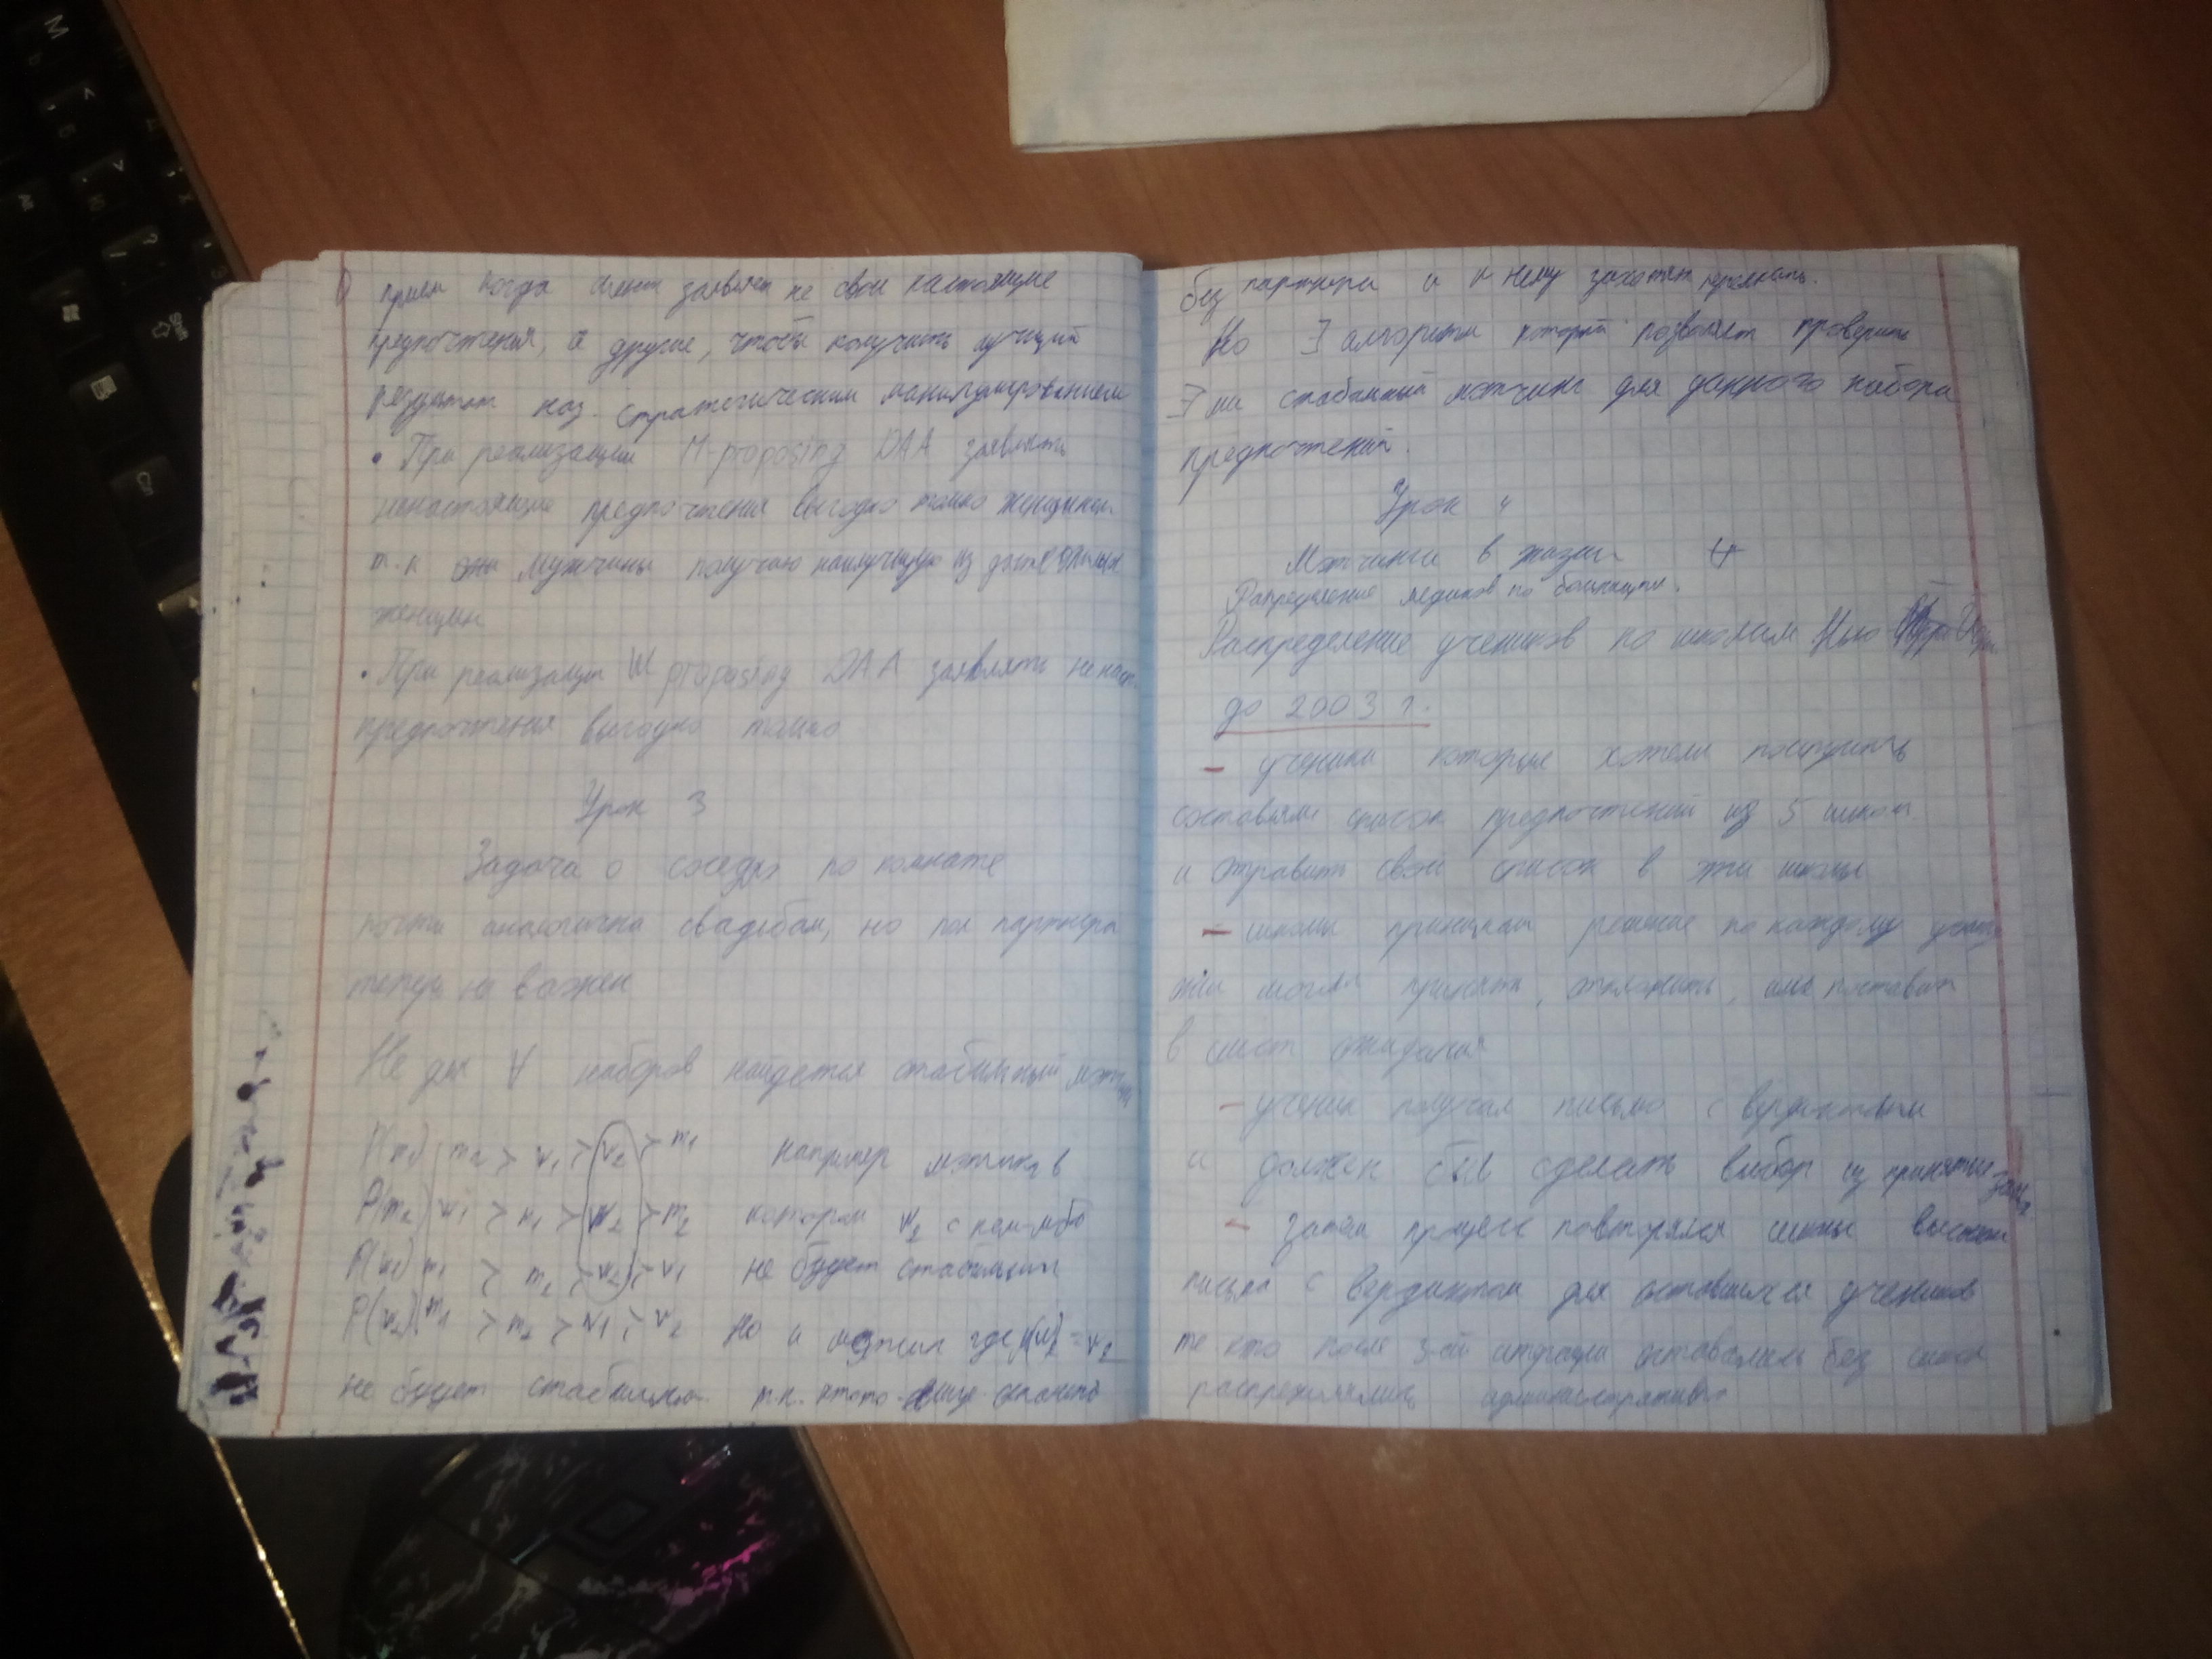 приём когда агент заявляет не свои настоящие
предпочтения, а другие, чтобы получить лучший
результат наз. стратегическим манипулированием
• При реализации M-proposing DAA заявлять
ненастоящие предпочтения выгодно только женщинам
т.к мужчины получаю наилучшую из достижимых
женщин
• При реализации W proposing DAA заявлять не наст.
предпочтения выгодно только
Урок 3
Задача о соседях по комнате
почти аналогична свадьбам, но пол партнера
теперь не важен
Не для ∀ наборов найдется стабильный мэтчинг
P(m1) m2 > w1 > w2 > m1 например мэтчинг в
P(m2) w1 > m1 > w2 > m2 котором w2 с кем-либо
P(w1) m1 > m2 > w2 > w1 не будет стабильным
P(w2) m1 > m2 > w1 > w2 Но и мэтчинг где = w2
не будет стабилен т.к. ктото
без партнера и к нему захотят
Но ∃ алгоритм который позволяет проверить
∃ ли стабильный мэтчинг для данного набора
предпочтений.
Урок 4
Мэтчинги в жизни
Распределение медиков по больницам.
Распределение учеников по школам Нью
до 2003 г.
- ученики которые хотели поступить
составляли список предпочтений из 5 школ
и отравить свой список в эти школы
- школы принимали решение по каждому
они могли принять, отклонить, или поставить
в лист ожидания
- ученик получал письмо с вердиктами
и должен был сделать выбор из
- Затем процесс повторялся школы высылали
письма с вердиктом для оставшихся учеников
те кто после 3-ей итерации оставались без школ
распределялись административно